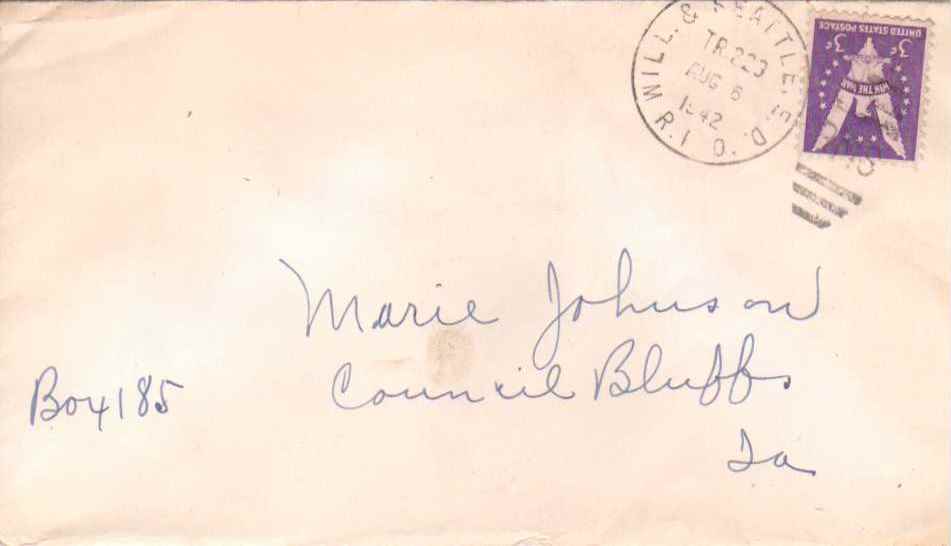 WILL. & SEATTLE. E.D.
TR.223
AUG 6
1942
R.P.O.
UNITED STATES POSTAGE
3¢ 3¢
WIN THE WAR
Marie Johnson
Council Bluffs
Ia
Box 185